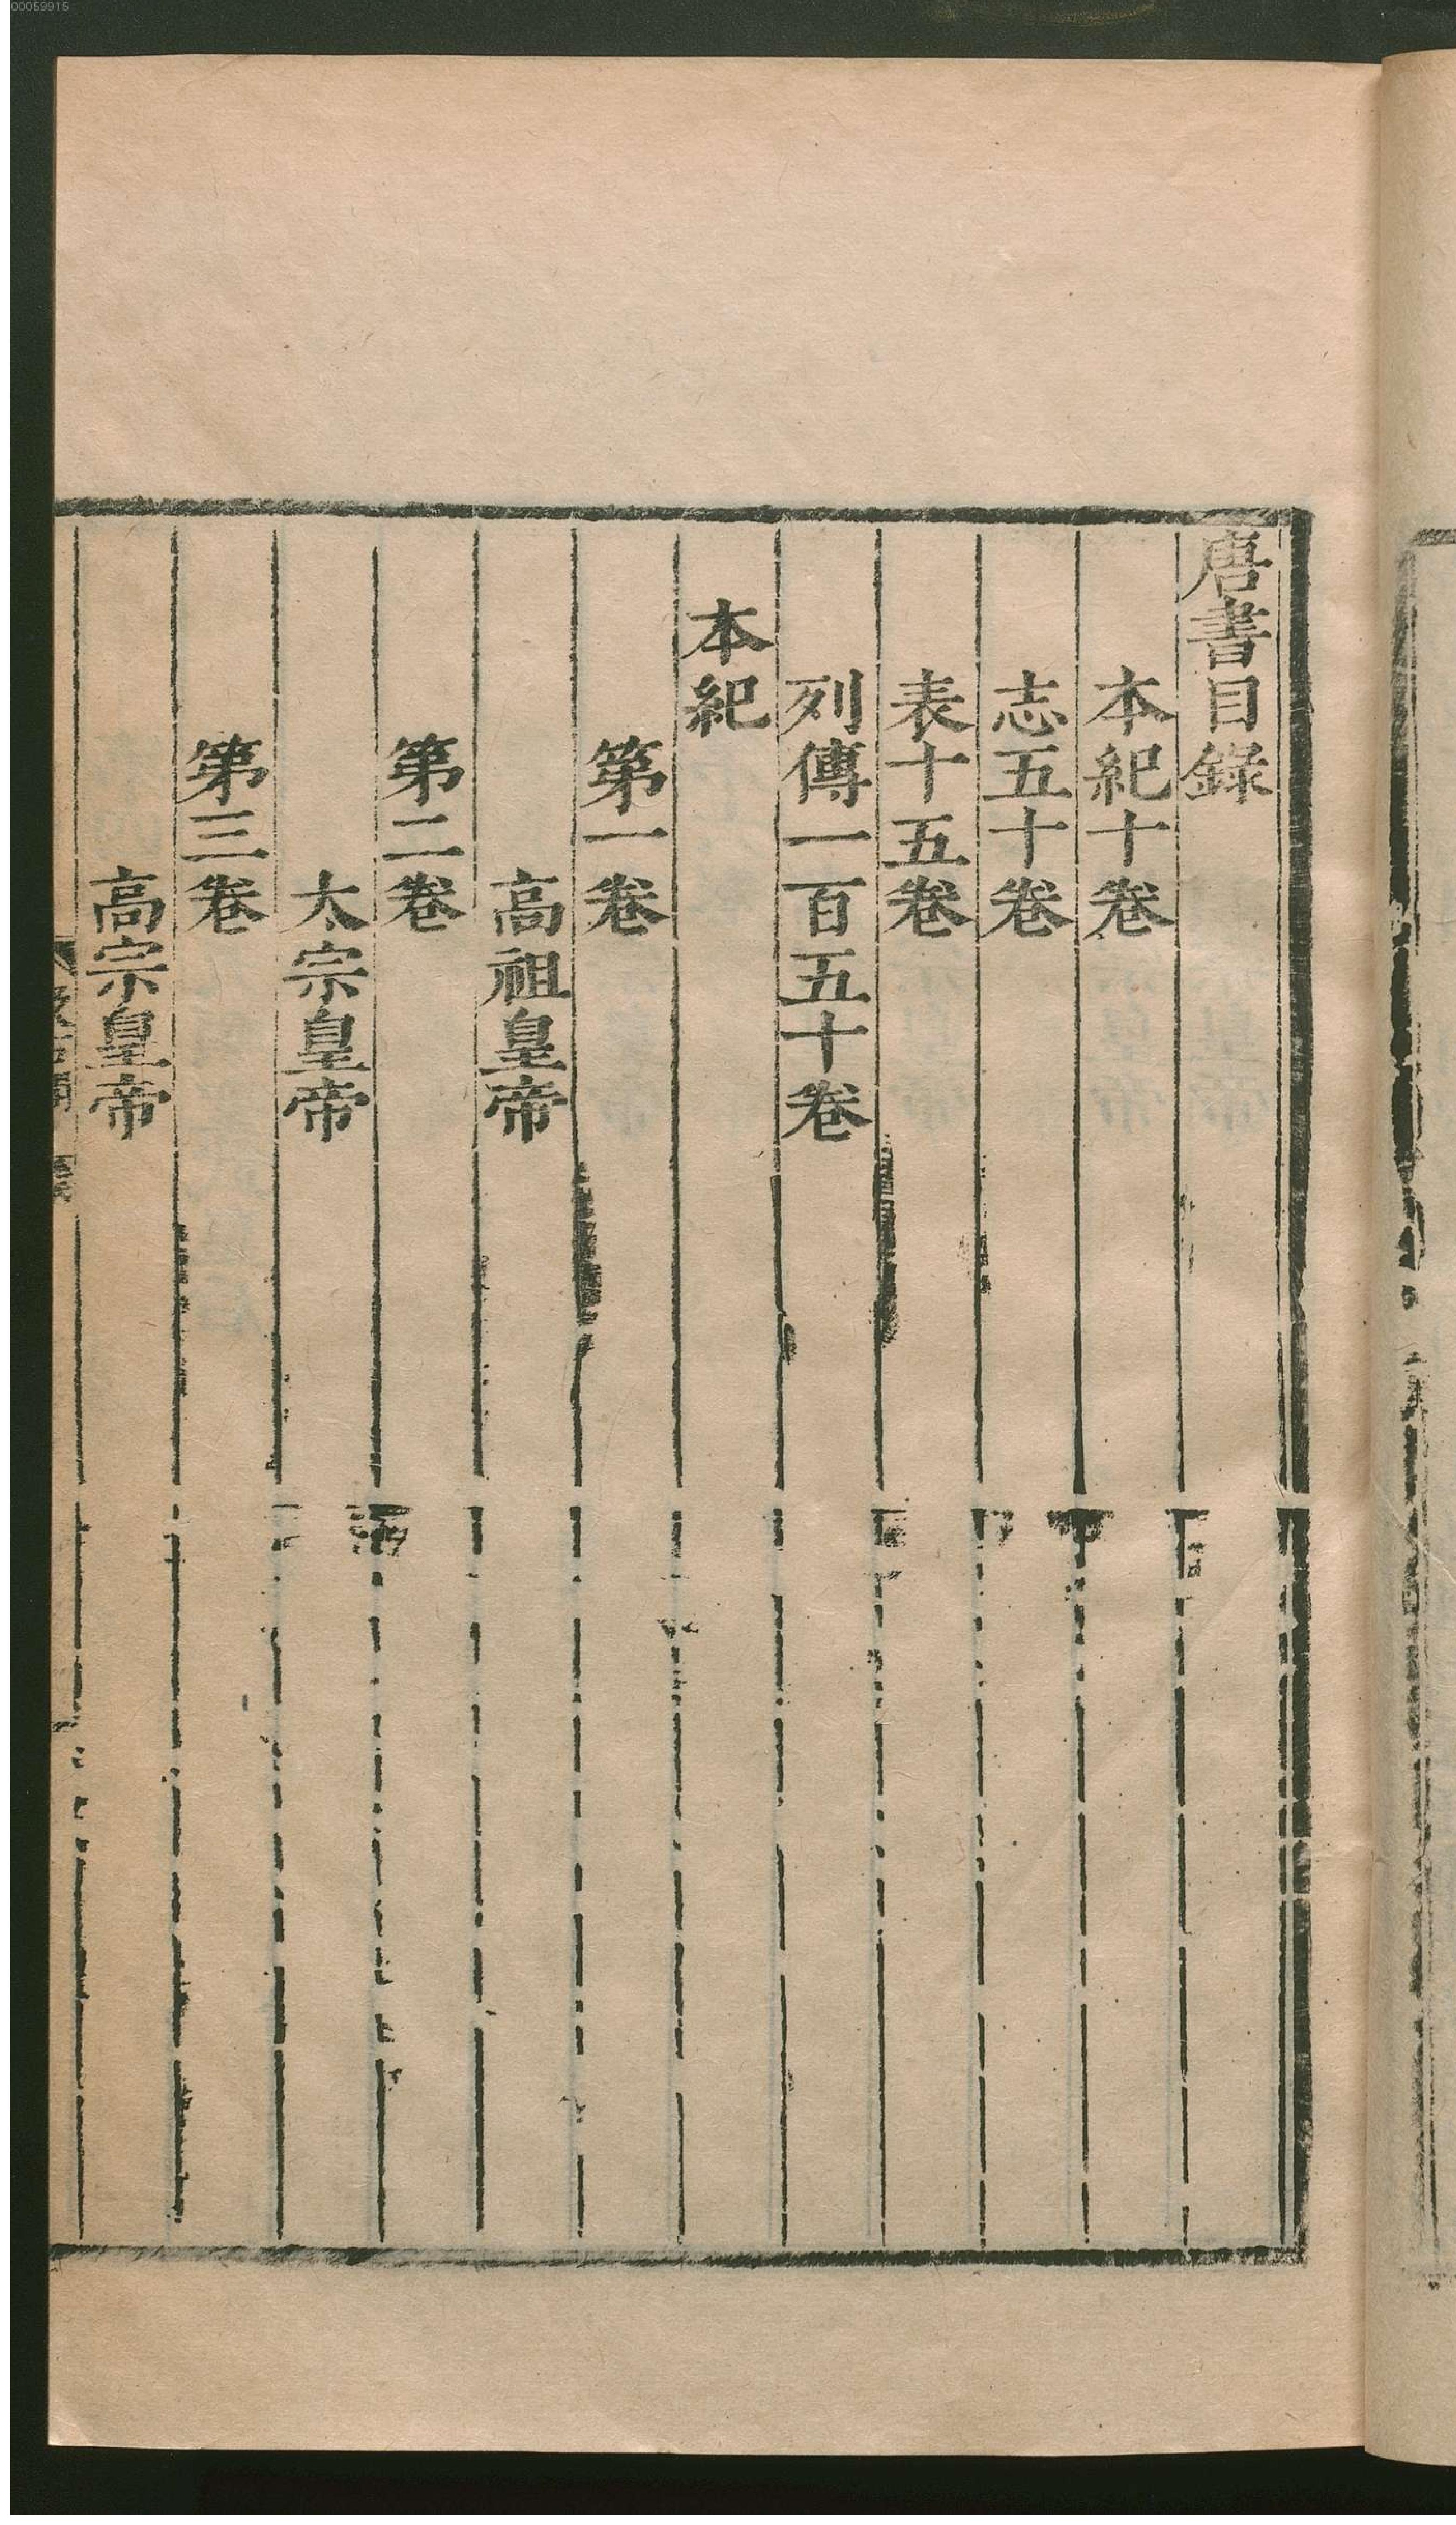 00059915
唐書目錄
本紀十卷
志五十卷
表十五卷
列傳一百五十卷
本紀
第一卷
高祖皇帝
第二卷
太宗皇帝
第三卷
高宗皇帝